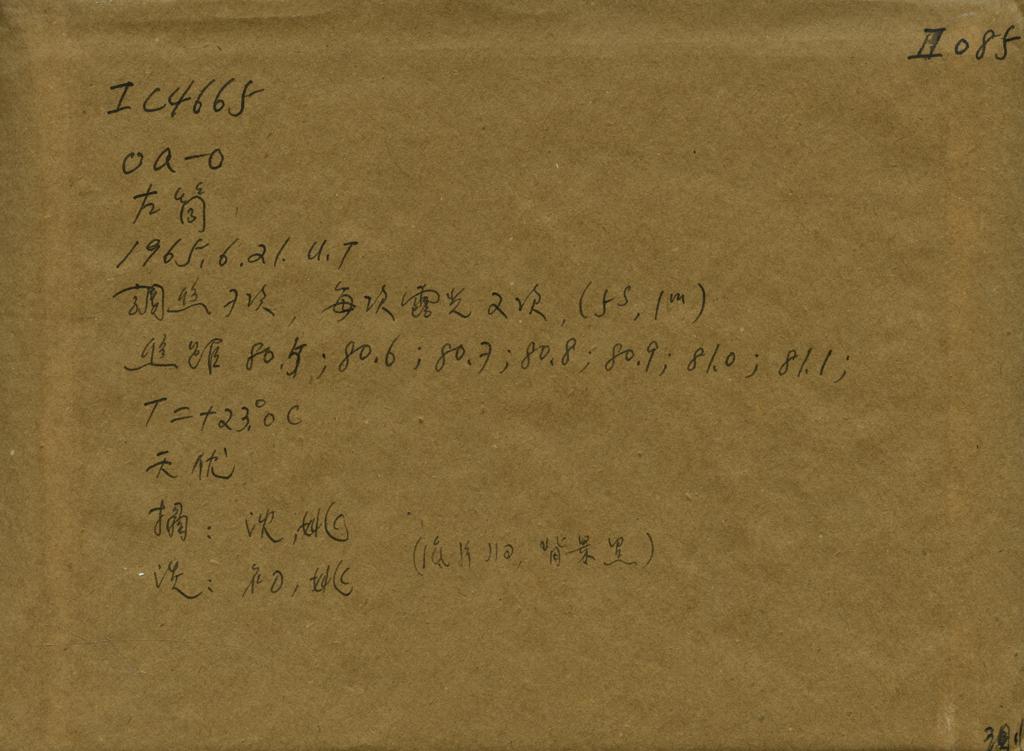 II 085
IC4665
Oa-O
左筒
1965.6.21. U.T
調焦7次, 每次露光2次, (5s, 1m)
焦距 80.5; 80.6; 80.7; 80.8; 80.9; 81.0; 81.1;
T=+23.°0 C
天优
摄: 沈, 姚
(底片旧, 背景黑)
洗: 初, 姚